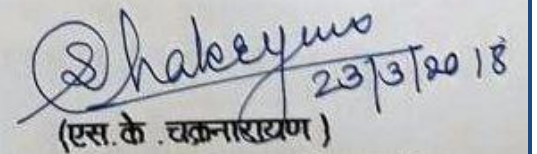 23/3/2018
(एस.के .चक्रनारायण )